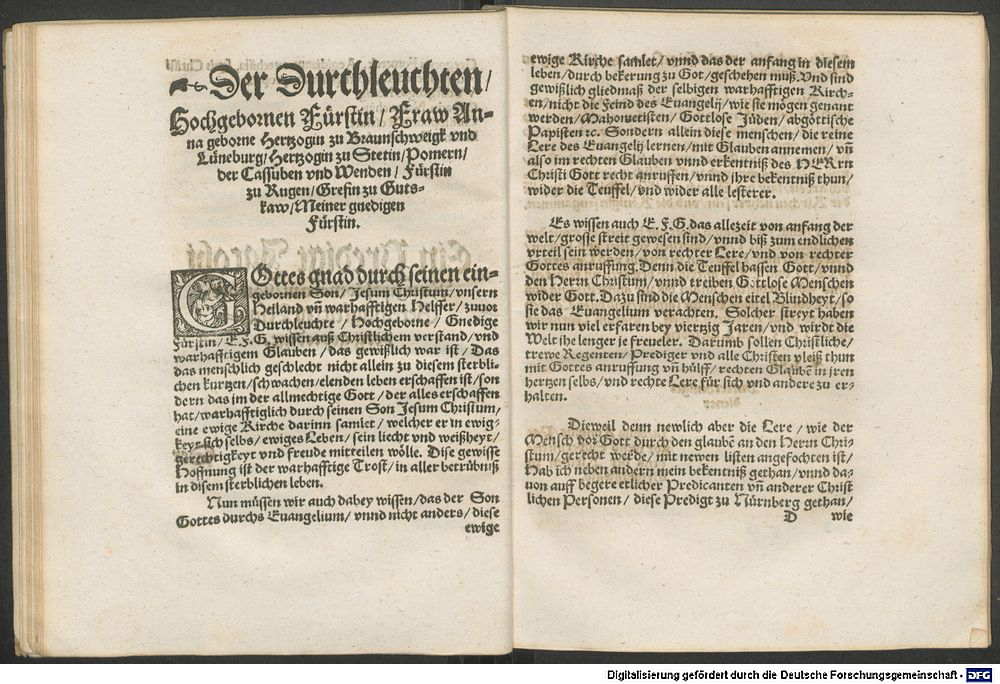 Der Durchleuchten/
Hochgebornen Fürstin/ Fraw An-
na geborne Hertzogin zu Braunschweigk vnd
Lüneburg/ Hertzogin zu Stetin/ Pomern/
der Cassuben vnd Wenden/ Fürstin
zu Rugen/ Grefin zu Guts-
kaw/ Meiner gnedigen
Fürstin.
GOttes gnad durch seinen ein-
gebornen Son/ Jesum Christum/ vnsern
Heiland vñ warhafftigen Helffer/ zuuor
Durchleuchte/ Hochgeborne/ Gnedige
Fürstin/ E. F. G. wissen auß Christlichem verstand/ vnd
warhafftigem Glauben/ das gewißlich war ist/ Das
das menschlich geschlecht nicht allein zu diesem sterbli-
chen kurtzen/ schwachen/ elenden leben erschaffen ist/ son
dern das im der allmechtige Gott/ der alles erschaffen
hat/ warhafftiglich durch seinen Son Jesum Christum/
eine ewige Kirche darinn samlet/ welcher er in ewig-
keyt sich selbs/ ewiges Leben/ sein liecht vnd weißheyt/
gerechtigkeyt vnd freude mitteilen wölle. Dise gewisse
Hoffnung ist der warhafftige Trost/ in aller betrübniß
in disem sterblichen leben.
Nun müssen wir auch dabey wissen/ das der Son
Gottes durchs Euangelium/ vnnd nicht anders/ diese
ewige
ewige Kirche samlet/ vnnd das der anfang in diesem
leben/ durch bekerung zu Got/ geschehen muß. Vnd sind
gewißlich gliedmaß der selbigen warhafftigen Kirch-
en/ nicht die Feind des Euangelij/ wie sie mögen genant
werden/ Mahometisten/ Gottlose Jüden/ abgöttische
Papisten ꝛc. Sondern allein diese menschen/ die reine
Lere des Euangelij lernen/ mit Glauben annemen/ vñ
also im rechten Glauben vnnd erkentniß des HERrn
Christi Gott recht anruffen/ vnnd ihre bekentniß thun/
wider die Teuffel/ vnd wider alle lesterer.
Es wissen auch E. F. G. das allezeit von anfang der
welt/ grosse streit gewesen sind/ vnnd biß zum endlichen
vrteil sein werden/ von rechter Lere/ vnd von rechter
Gottes anruffung. Denn die Teuffel hassen Gott/ vnnd
den Herrn Christum/ vnnd treiben Gottlose Menschen
wider Gott. Dazu sind die Menschen eitel Blindheyt/ so
sie das Euangelium verachten. Solcher streyt haben
wir nun viel erfaren bey viertzig Jaren/ vnd wirdt die
Welt ihe lenger je freueler. Darumb sollen Christliche/
trewe Regenten/ Prediger vnd alle Christen vleiß thun
mit Gottes anruffung vñ hülff/ rechten Glaubẽ in jren
hertzen selbs/ vnd rechte Lere für sich vnd andere zu er-
halten.
Dieweil denn newlich aber die Lere/ wie der
Mensch vor Gott durch den glaubẽ an den Herrn Chri-
stum/ gerecht werde/ mit newen listen angefochten ist/
Hab ich neben andern mein bekentniß gethan/ vnnd da-
uon auff begere etlicher Predicanten vñ anderer Christ
lichen Personen/ diese Predigt zu Nürnberg gethan/
D wie
Digitalisierung gefördert durch die Deutsche Forschungsgemeinschaft - DFG